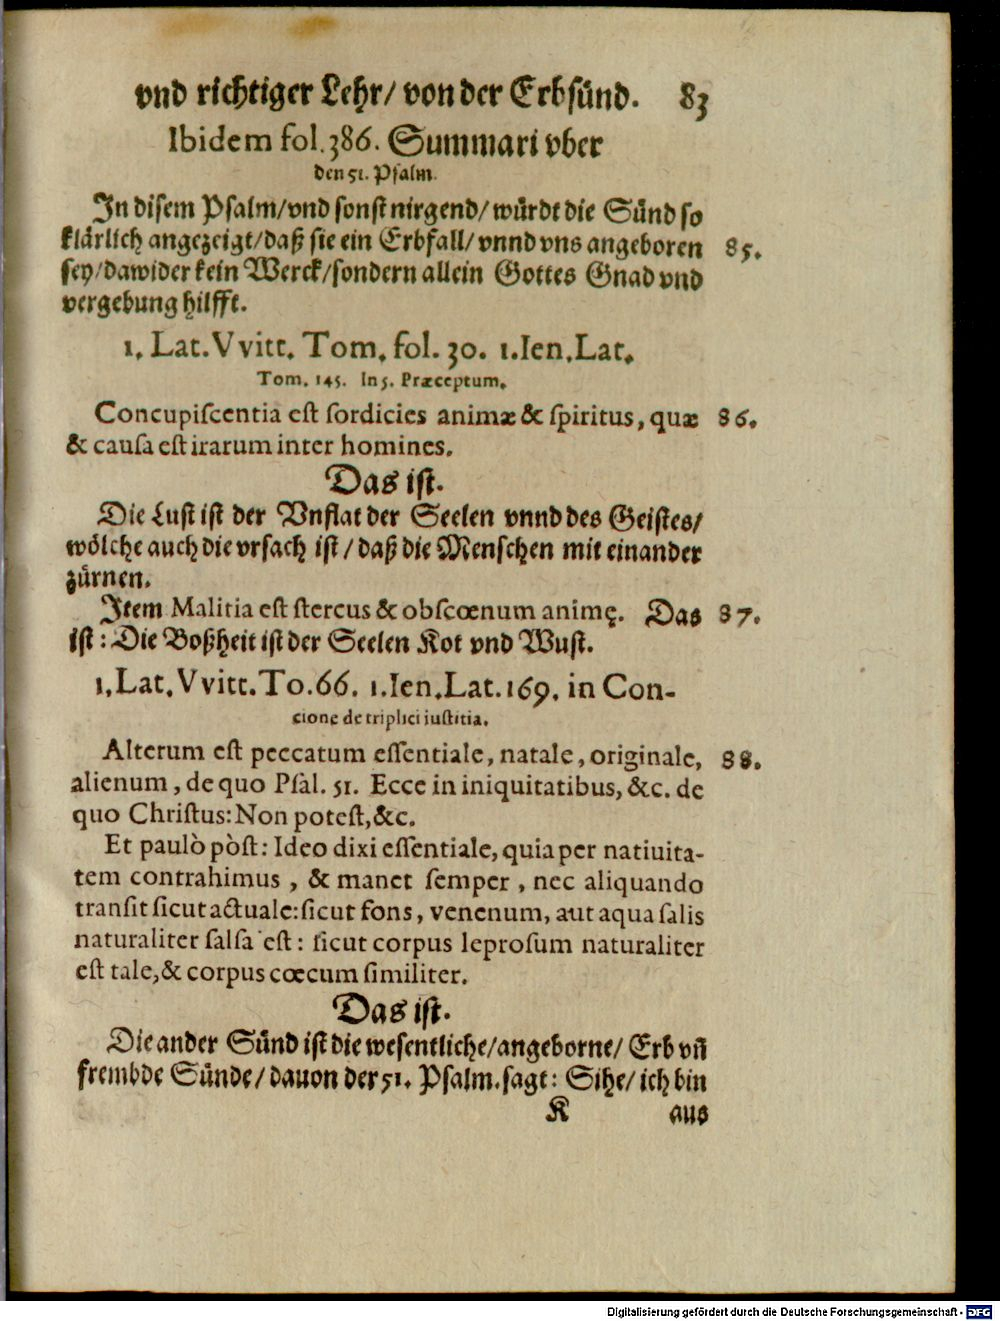 vnd richtiger Lehr/ von der Erbsünd. 83
Ibidem fol. 386. Summari vber
den 51. Psalm.
In disem Psalm/vnd sonst nirgend/ würdt die Sünd so
klärlich angezeigt/daß sie ein Erbfall/ vnnd vns angeboren 85.
sey/dawider kein Werck/sondern allein Gottes Gnad vnd
vergebung hilfft.
1. Lat. Vvitt. Tom. fol. 30. 1. Ien. Lat.
Tom. 145. In 5. Præceptum.
Concupiscentia est sordicies animæ & spiritus, quæ 86.
& causa est irarum inter homines.
Das ist.
Die Lust ist der Vnflat der Seelen vnnd des Geistes/
wölche auch die vrsach ist/ daß die Menschen mit einander
zürnen.
Item Malitia est stercus & obscœnum animę. Das 87.
ist: Die Boßheit ist der Seelen Kot vnd Wust.
1. Lat. Vvitt. To. 66. 1. Ien. Lat. 169. in Con-
cione de triplici iustitia.
Alterum est peccatum essentiale, natale, originale, 88.
alienum, de quo Psal. 51. Ecce in iniquitatibus, &c. de
quo Christus: Non potest, &c.
Et paulò pòst: Ideo dixi essentiale, quia per natiuita-
tem contrahimus, & manet semper, nec aliquando
transit sicut actuale: sicut fons, venenum, aut aqua salis
naturaliter salsa est: sicut corpus leprosum naturaliter
est tale, & corpus cœcum similiter.
Das ist.
Die ander Sünd ist die wesentliche/angeborne/ Erb vñ
frembde Sünde/ dauon der 51. Psalm. sagt: Sihe/ ich bin
K aus
Digitalisierung gefördert durch die Deutsche Forschungsgemeinschaft - DFG